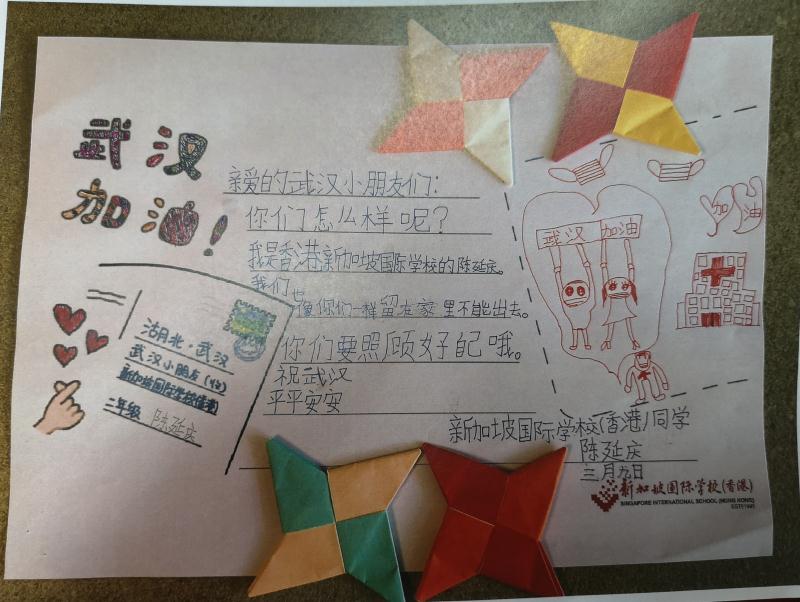 武汉
加油！
亲爱的武汉小朋友们：
你们怎么样呢？
我是香港新加坡国际学校的陈延庆。
我们也
像你们一样留在家里不能出去。
你们要照顾好自己哦。
祝武汉
平平安安
新加坡国际学校(香港)同学
陈延庆
三月九日
湖北·武汉
武汉小朋友(收)
新加坡国际学校(香港)
二年级 陈延庆
武汉 加油
加油
新加坡国际学校(香港)
SINGAPORE INTERNATIONAL SCHOOL (HONG KONG)
EST.1991